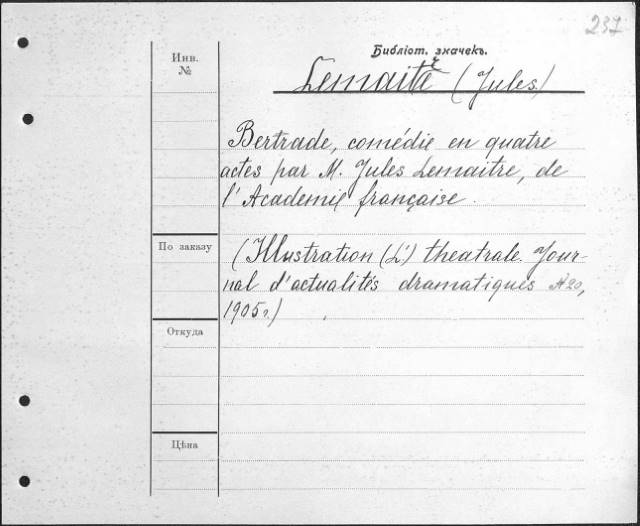 237
Библіот. значекъ.
Инв.
№
Lemaitre (Jules)
Bertrade, comédie en quatre
actes par M. Jules Lemaitre, de
l'Academie française.
По заказу
(Illustration (L') theatrale. Jour-
nal d'actualités dramatiques № 20,
1905 г.)
Откуда
Цѣна